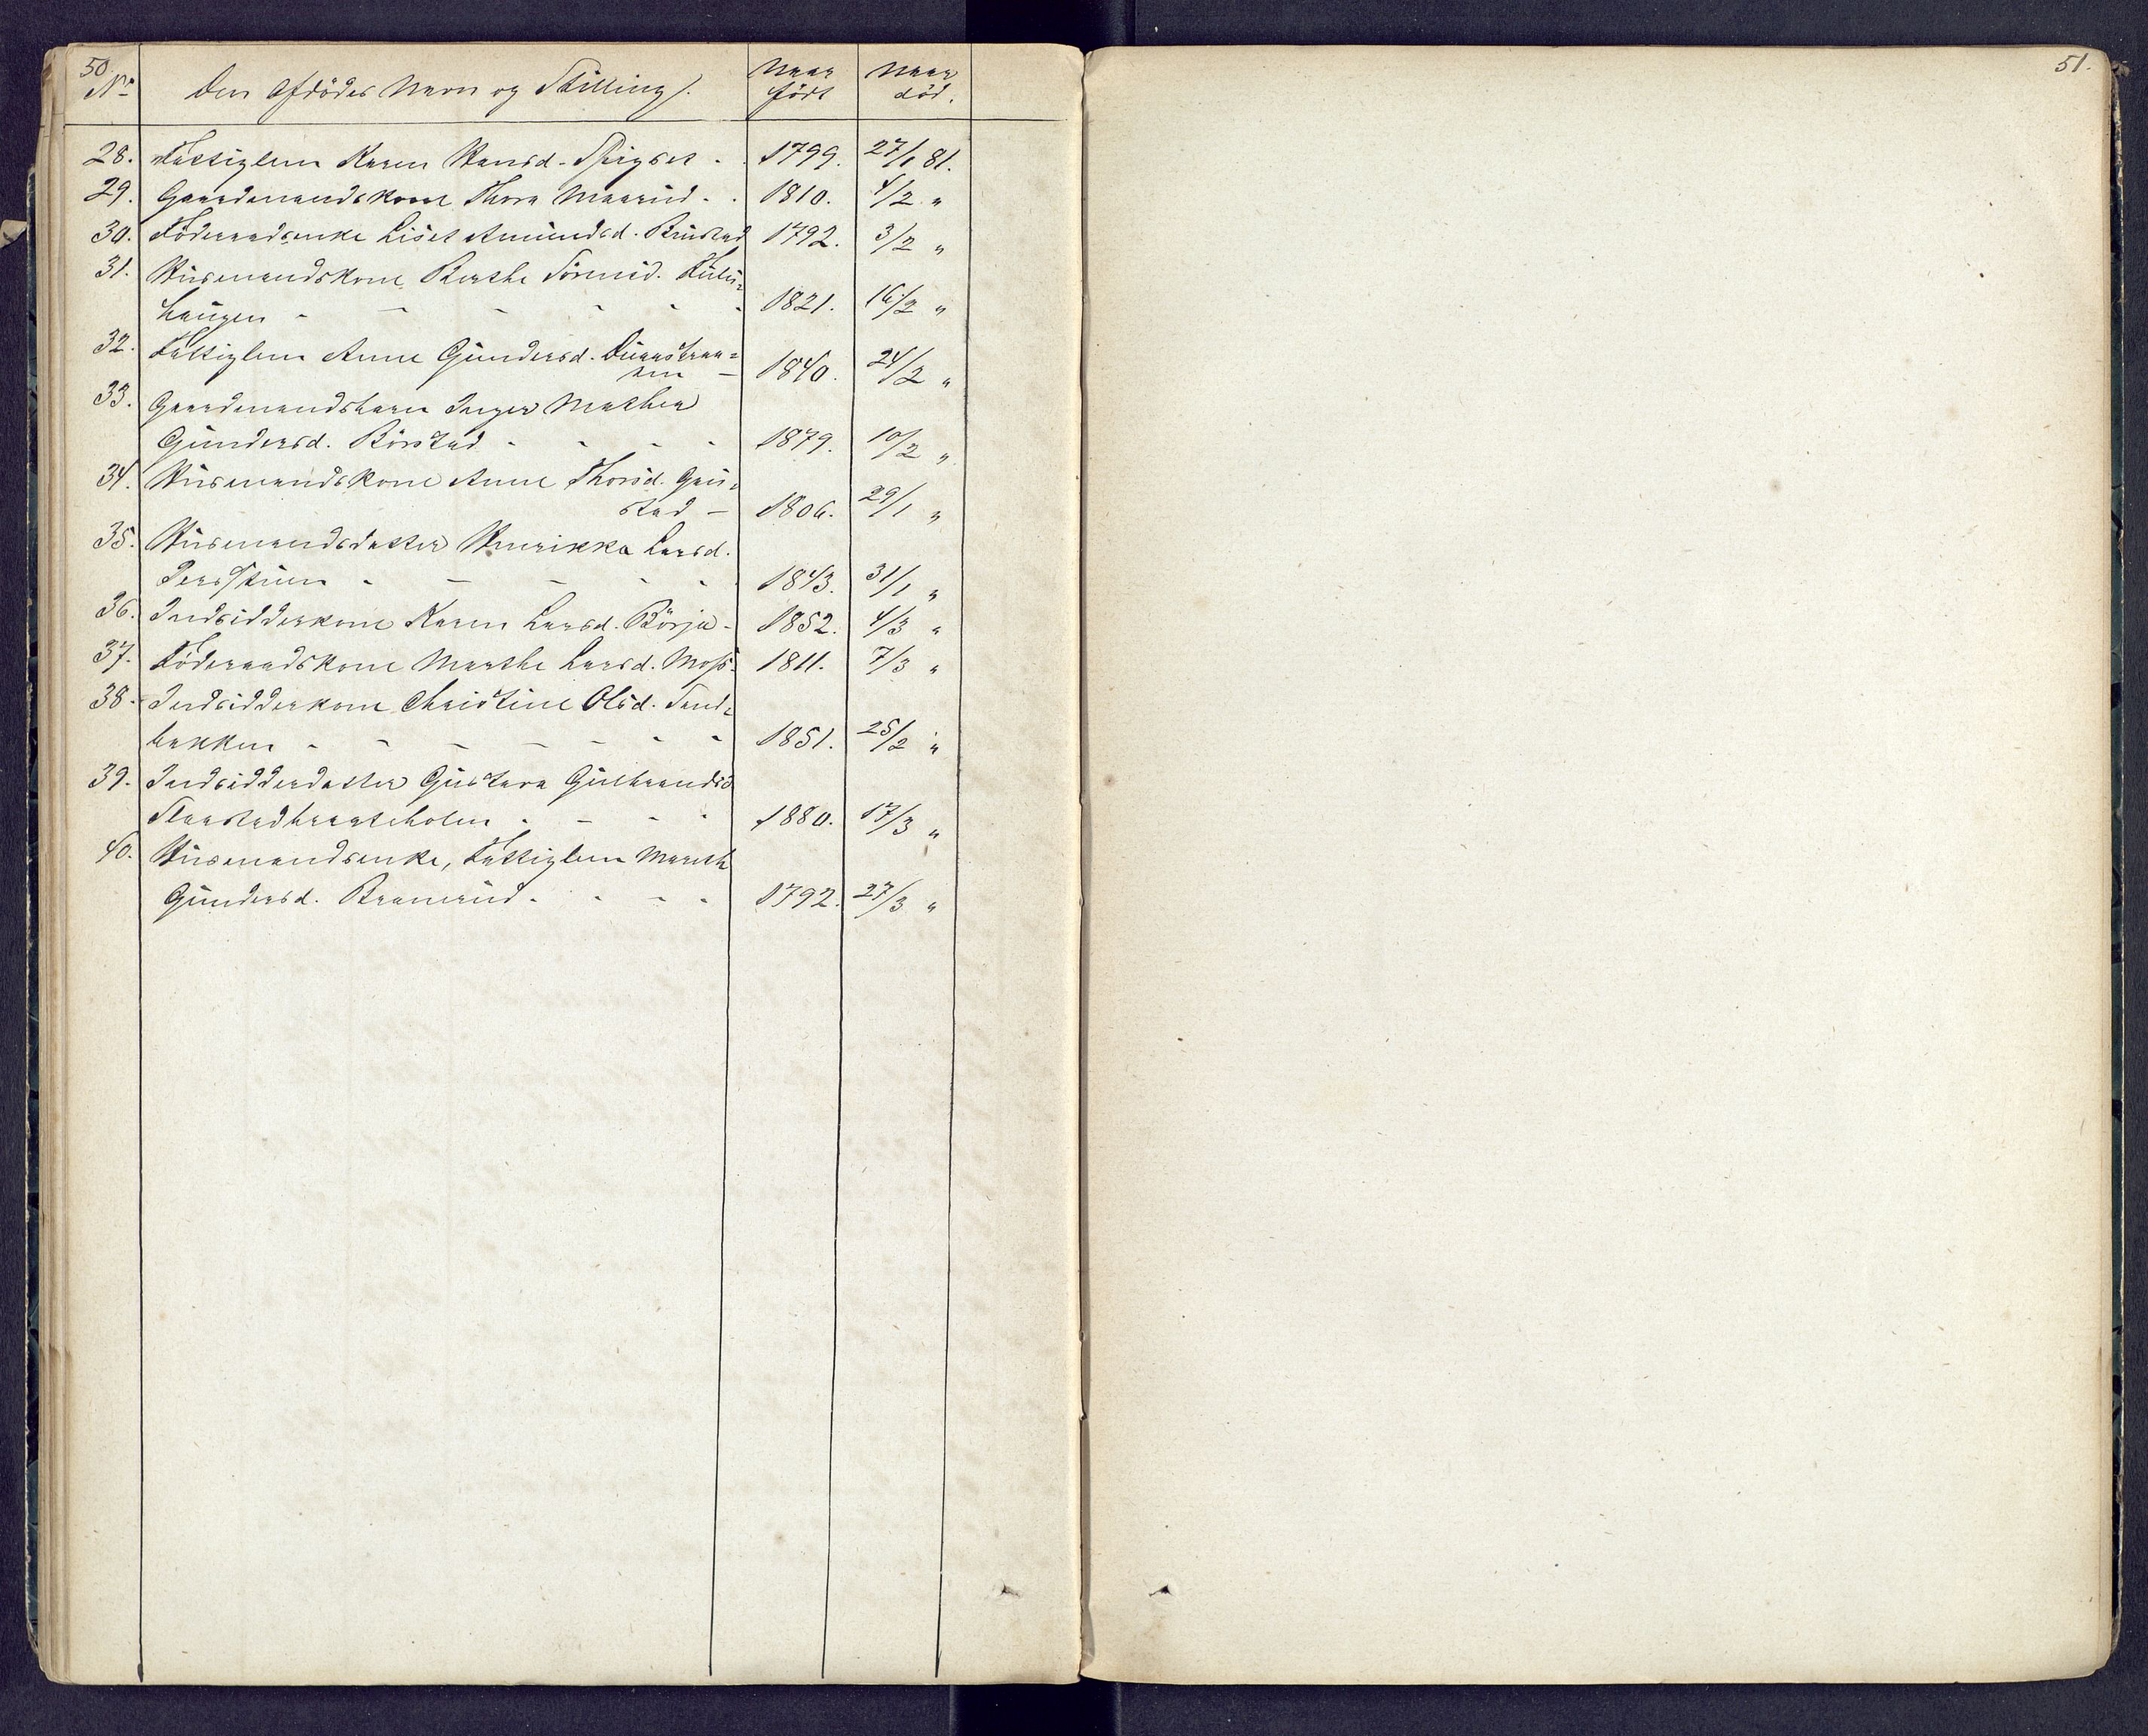 50.
No Den Afdødes Navn og Stilling. Naar født Naar død.
28. Fattiglem Karen Hansd. Spigset - 1799. 27/1 81.
29. Gaardmandskone Thora Maarud - 1810. 4/2 "
30. Föderaadsenke Liset Amundsd. Brustad 1792. 3/2 "
31. Husmandskone Berthe Sörensd.
haugen - - - - - - 1821. 16/2 "
32. Fattiglem Anne Gundersd.
1840. 24/2 "
33. Gaardmandsbarn Inger Mathea
Gundersd. Börstad - - - - 1879. 10/2 "
34. Husmandskone Anne Thorsd. Gau=
stad - 1806. 29/1 "
35. Husmandsdatter Henrikka Larsd.
- - - - - 1843. 31/1 "
36. Indsidderkone Karen Larsd. Börju - 1852. 4/3 "
37. Föderaadskone Marthe Larsd. Moss - 1811. 7/3 "
38. Indsidderkone Christine Olsd. Sand=
bakken - - - - - - - 1851. 25/2 "
39. Indsidderdatter Gustava Gulbrandsd
- - - - 1880. 17/3 "
40. Husmandsenke, Fattiglem Marth
Gundersd. Bramrud - - - - 1792. 27/3 "
51.